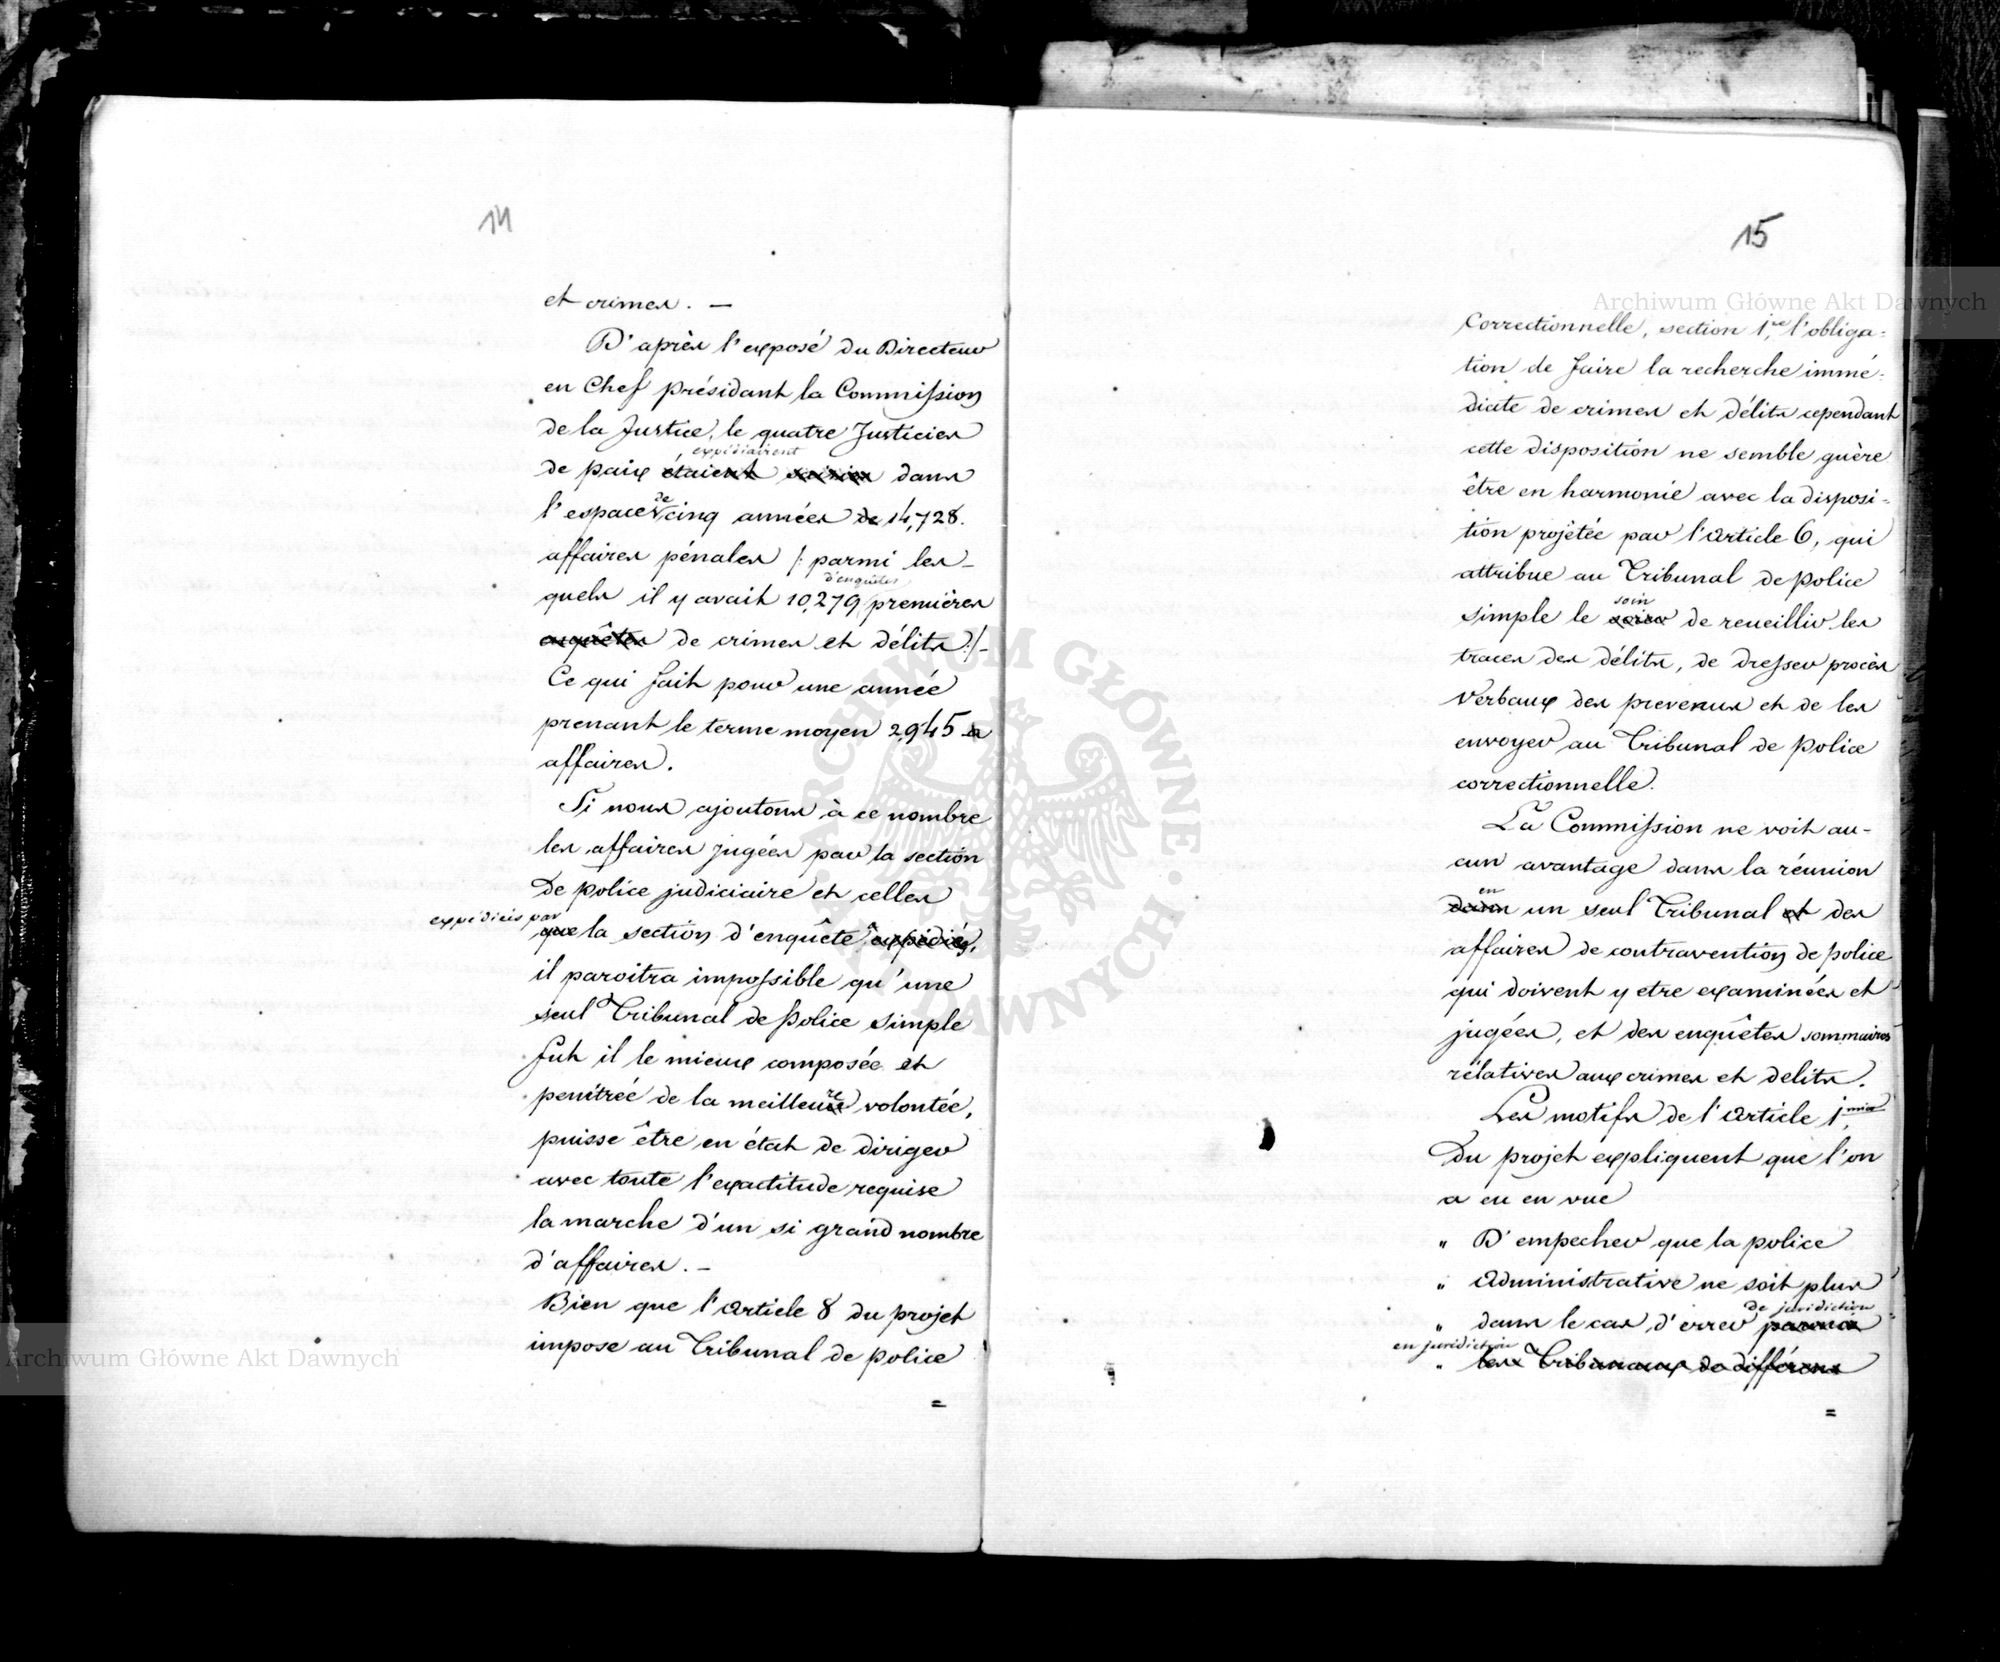 14
et crimes. —
D'après l'exposé du Directeur
en Chef présidant la Commission
de la Justice, le quatre Justicies
expédiairent
de paix étaient saisies dans
l'espace de cinq années de 14,728.
affaires pénales /: parmi les-
d'enquêtes
quels il y avait 10,279 premières
enquêtes de crimes et délits :/-
Ce qui fait pour une année
prenant le terme moyen 2,945
affaires.
Si nous ajoutons à ce nombre
les affaires jugées par la section
de police judiciaire et celles
expédiées par
que la section d'enquête expédiés,
il paroitra impossible qu'une
seul Tribunal de Police simple
fut il le mieux composée et
penétrée de la meilleure volontée,
puisse être en état de diriger
avec toute l'exactitude requise
la marche d'un si grand nombre
d'affaires. —
Bien que l'Article 8 du projet
impose au Tribunal de police
=
15
Correctionnelle, section 1re, l'obliga=
tion de faire la recherche immé=
diate de crimes et délits cependant
cette disposition ne semble guère
être en harmonie avec la disposi=
tion projétée par l'Article 6, qui
attribue au Tribunal de police
soin
simple le de recueillir les
traces des délits, de dresser procès
verbaux des prevenus et de les
envoyer au Tribunal de Police
correctionnelle.
La Commission ne voit au-
cun avantage dans la réunion
en
dans un seul Tribunal et des
affaires de contravention de police
qui doivent y etre examinées et
jugées, et des enquêtes sommaires
rélatives aux crimes et delits.
Les motifs de l'Article 1,
Du projet expliquent que l'on
a eu en vue
" D'empecher que la police
" Administrative ne soit plus
de juridiction
" dans le cas d'errer parmis
en juridiction
" les Tribunaux de différens
=
Archiwum Główne Akt Dawnych
Archiwum Główne Akt Dawnych
ARCHIWUM GŁÓWNE AKT DAWNYCH